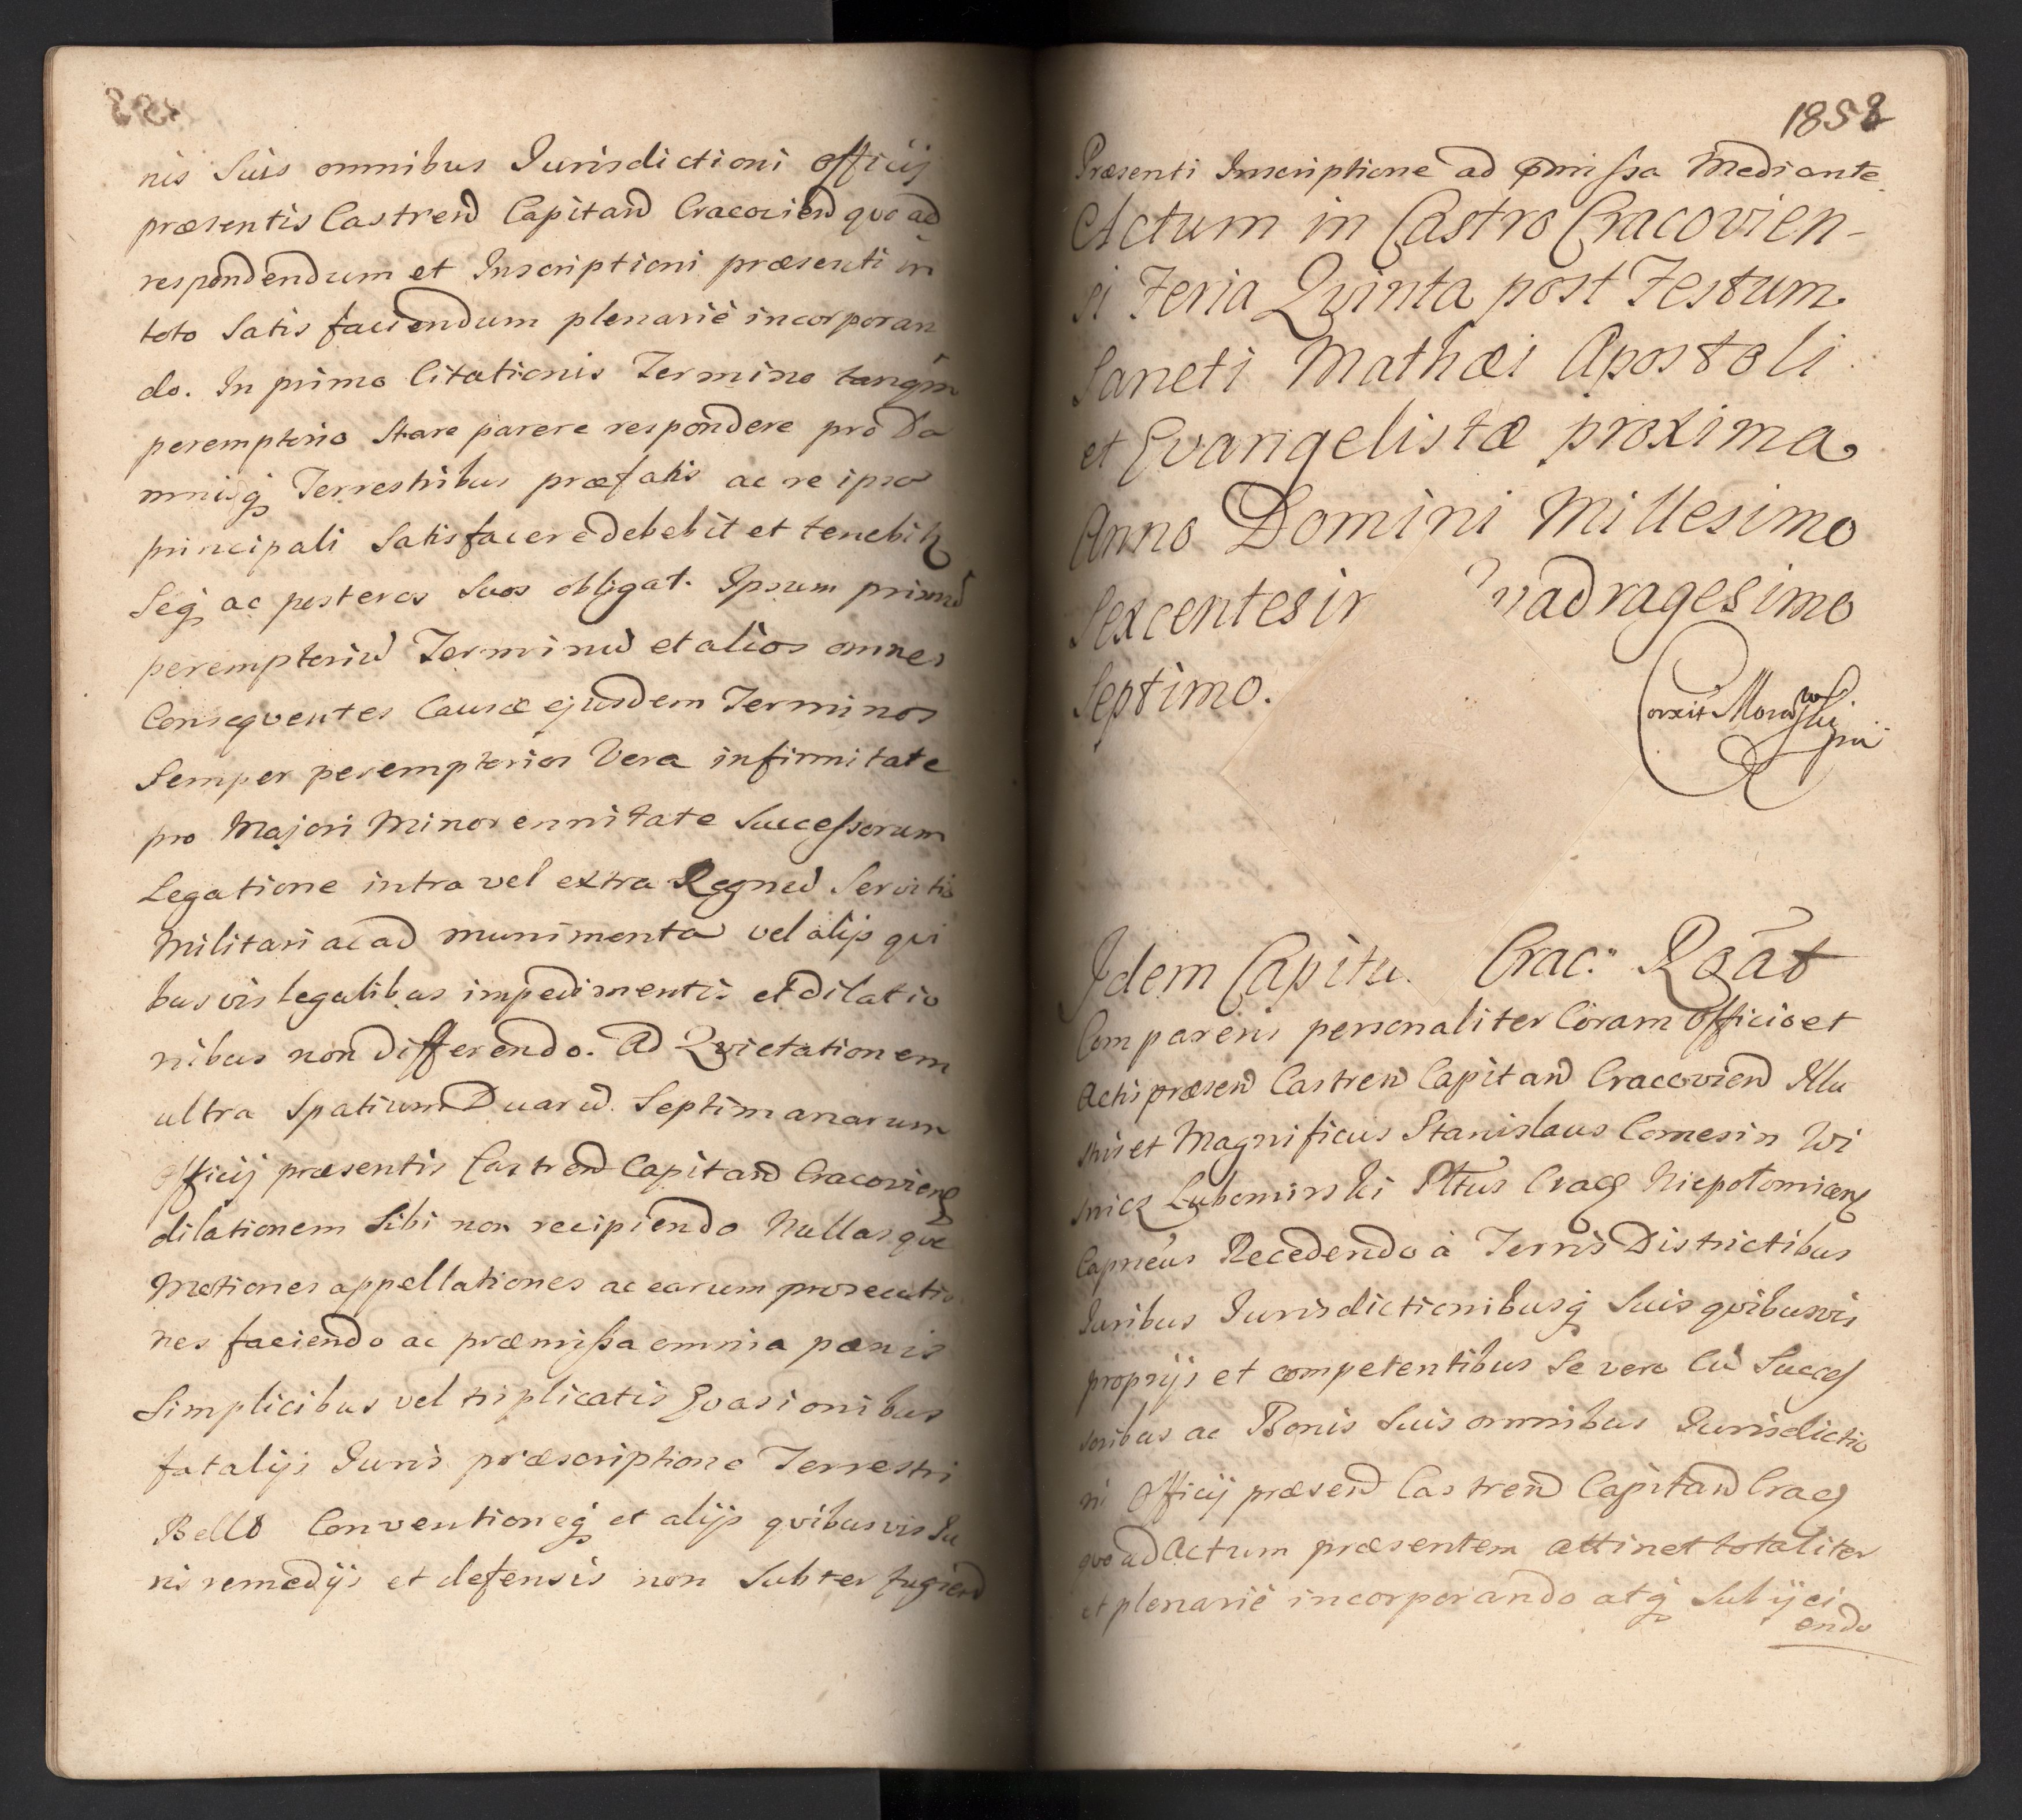 nis Suis omnibus Jurisdictioni officij
præsentis Castren Capitan Cracovien quo ad
respondendum et Inscriptioni præsenti in
toto Satis faciendum plenariè incorporan
do. In primo Citationis Termino tanqm
peremptorio Stare parere respondere pro Da
mnisq Terrestribus præfatis ac re ipsa
principali Satisfacere debebit et tenebit
Seq ac posteros Suos obligat. Ipsum primu
peremptoriu Terminu et alios omnes
Consequentes Causæ ejusdem Terminos
Semper peremptorios Vera infirmitate
pro Majori Minorennitate Successorum
Legatione intra vel extra Regnu Servitio
Militari ac ad munimenta vel alijs qui
busvis legalibus impedimentis et dilatio
nibus non differendo. Ad Quietationem
ultra Spatium Duaru Septimanarum
officij præsentis Castren Capitan Cracovien
dilationem Sibi non recipiendo Nullasque
Motiones appellationes ac earum prosecutio
nes faciendo ac præmissa omnia pænis
Simplicibus vel triplicatis Evasionibus
fatalijs Juris præscriptione Terrestri
Bello Conventioneq et alijs quibusvis Ju
ris remedijs et defensis non Subterfugien
1852
Præsenti Inscriptione ad præmissa Mediante
Actum in Castro Cracovien-
si Feria Quinta post Festum
Sancti Mathæi Apostoli
et Evangelistæ proxima
Anno Domini Millesimo
Sexcentesim Quadragesimo
Septimo.
Correxit Morawski
mp
Idem Capitu. Crac: Roăt
Comparens personaliter Coram Officio et
Actis præsen Castren Capitan Cracovien Illu
stris et Magnificus Stanislaus Comes in Wi
snicz Lubomirski Pttus Crac Niepołomicen
Capneus Recedendo à Terris Districtibus
Juribus Jurisdictionibusq Suis quibusvis
proprijs et competentibus Se vero Cu Succes
soribus ac Bonis Suis omnibus Jurisdictio
ni Officij præsen Castren Capitan Crac
quo ad Actum præsentem attinet totaliter
et plenariè incorporando atq Subijci
endo